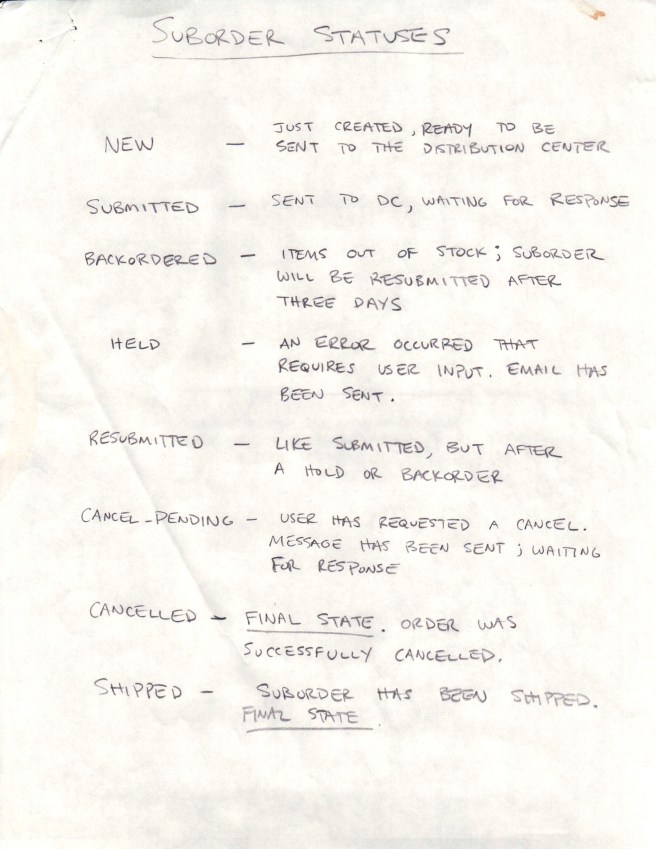 SUBORDER STATUSES
NEW - JUST CREATED, READY TO BE
SENT TO THE DISTRIBUTION CENTER
SUBMITTED - SENT TO DC, WAITING FOR RESPONSE
BACKORDERED - ITEMS OUT OF STOCK; SUBORDER
WILL BE RESUBMITTED AFTER
THREE DAYS
HELD - AN ERROR OCCURRED THAT
REQUIRES USER INPUT. EMAIL HAS
BEEN SENT.
RESUBMITTED - LIKE SUBMITTED, BUT AFTER
A HOLD OR BACKORDER
CANCEL-PENDING - USER HAS REQUESTED A CANCEL.
MESSAGE HAS BEEN SENT; WAITING
FOR RESPONSE
CANCELLED - FINAL STATE. ORDER WAS
SUCCESSFULLY CANCELLED.
SHIPPED - SUBORDER HAS BEEN SHIPPED.
FINAL STATE.